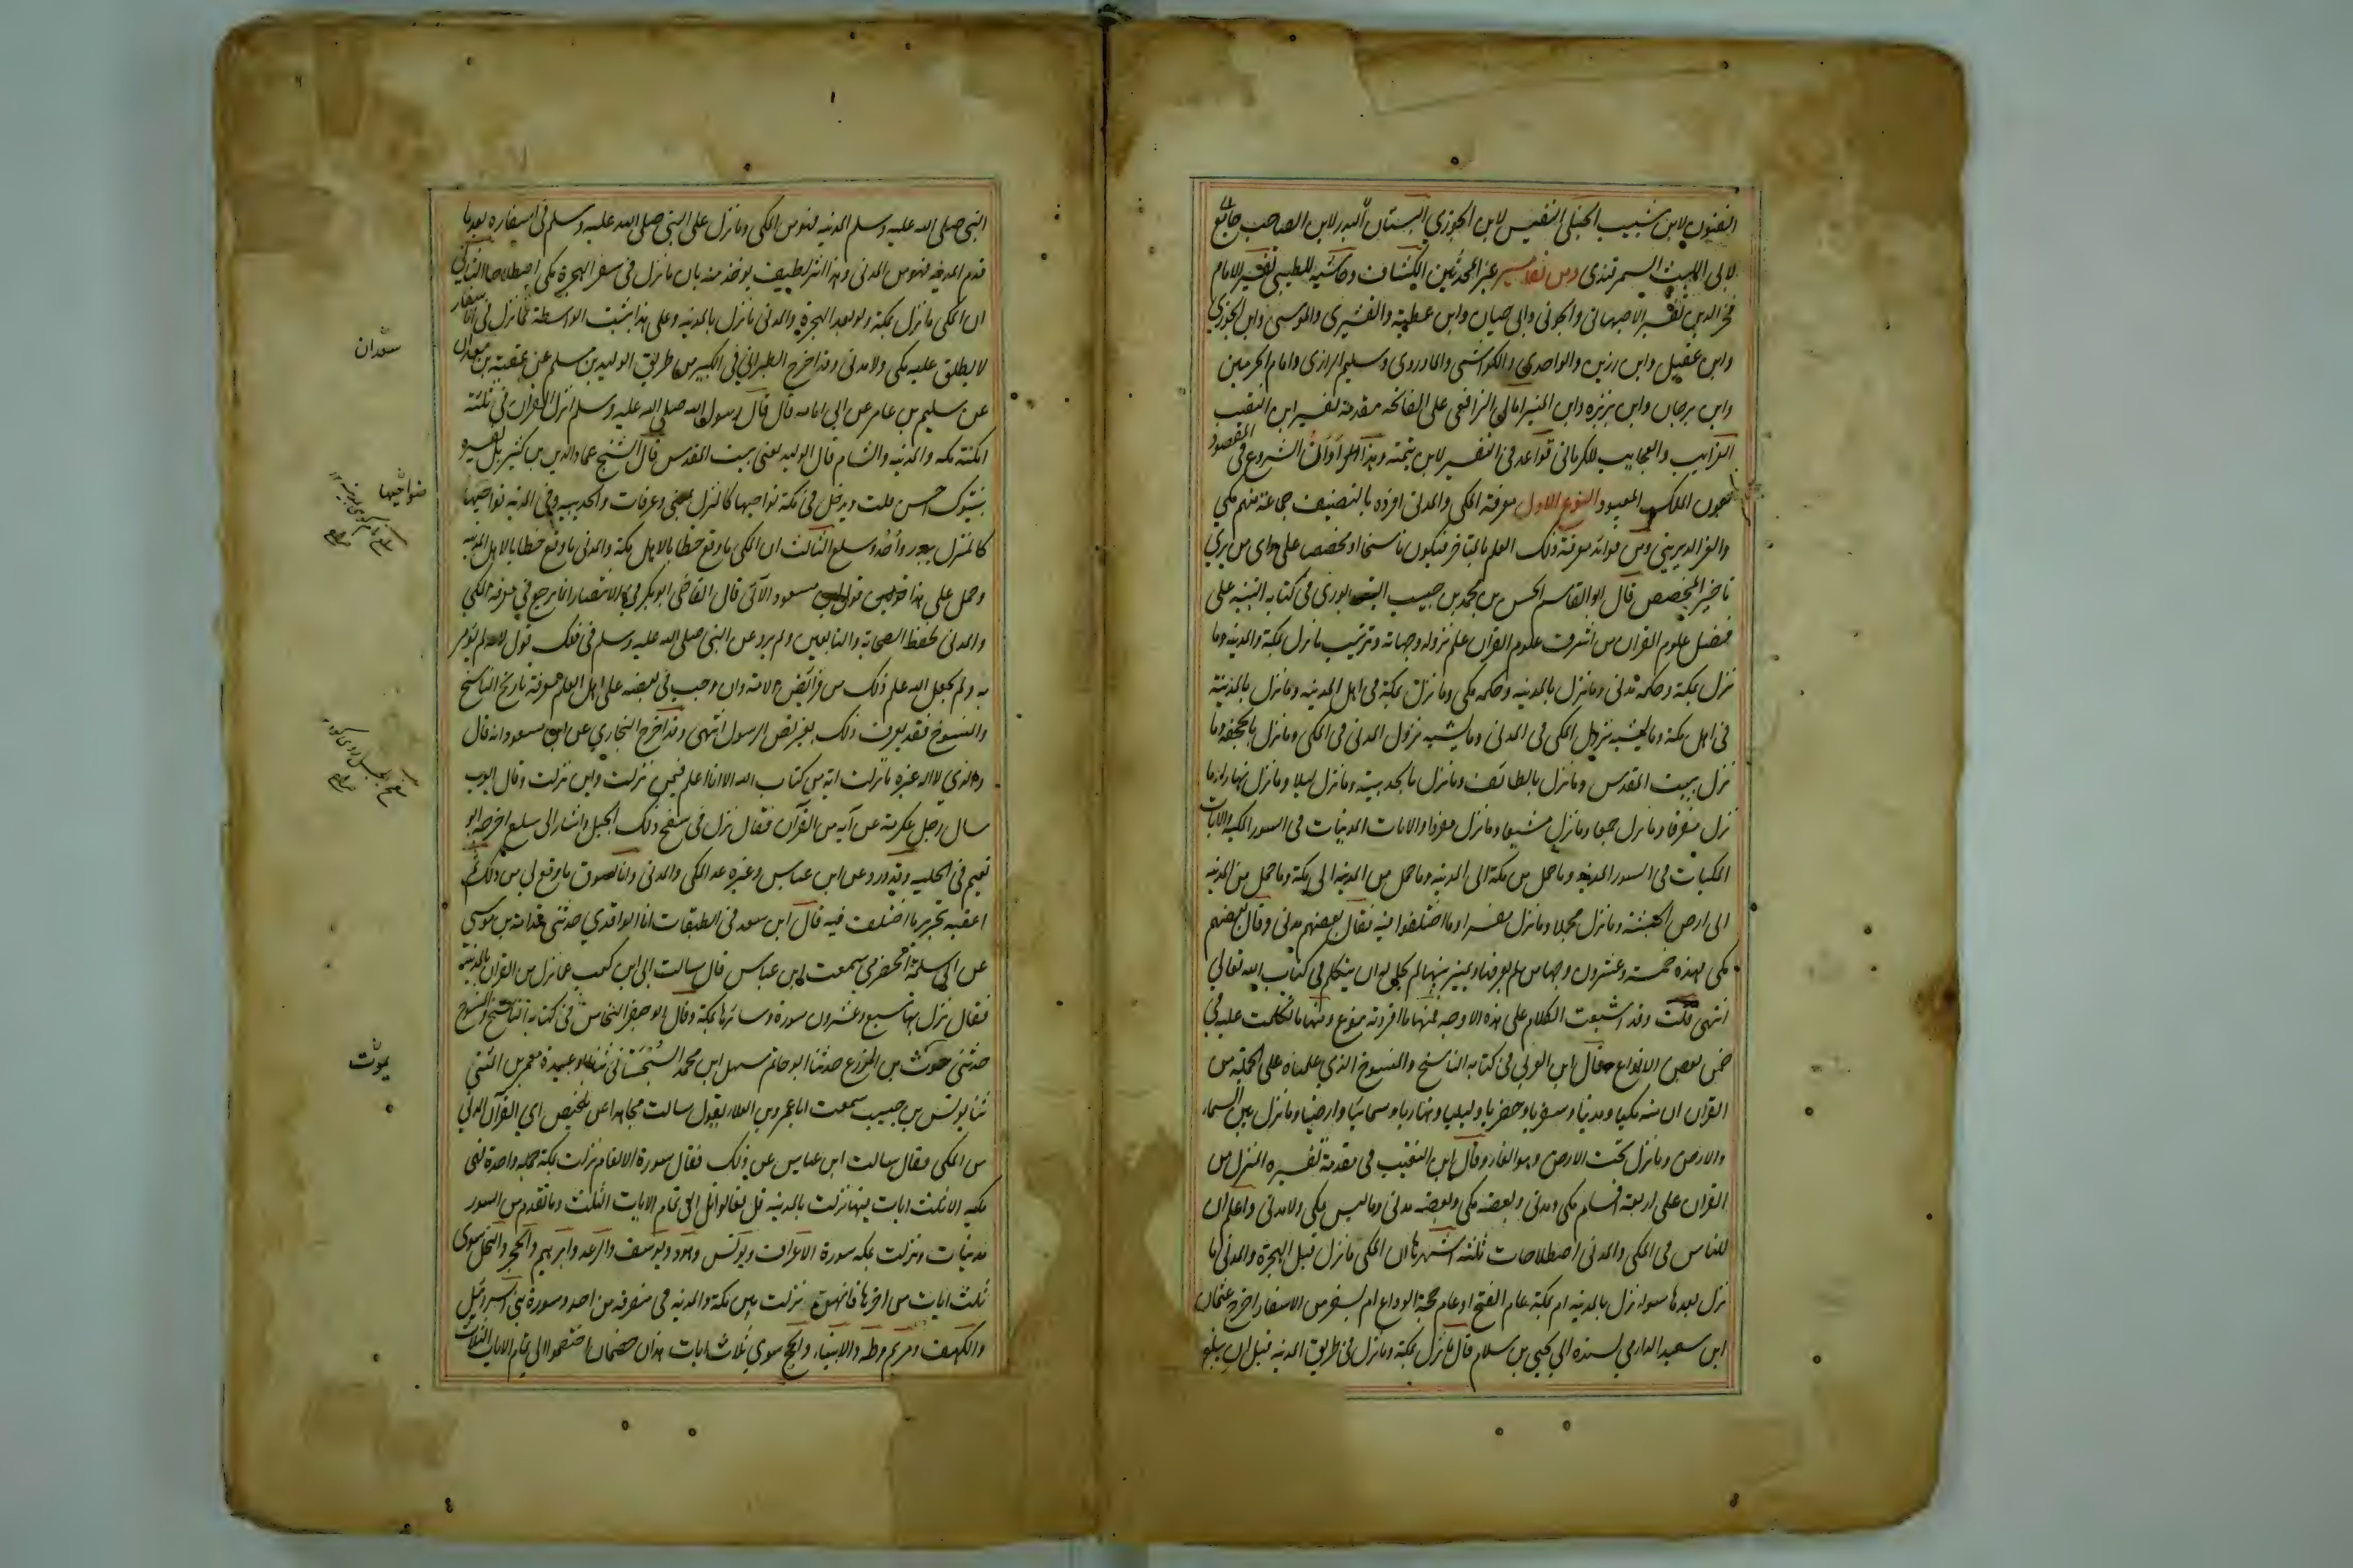 الفنون لابن شبيب الحنبلي النفيس لابن الجوزي البستان
لابي الليث السمرقندي ومن تفاسير غير المحدثين الكشاف وحاشيه للطيبي تفسير الامام
فخر الدين تفسير الاصبهاني والحوفي وابي حيان وابن عطية والقشيري والمرسي وابن الجوزي
وابن عقيل وابن رزين والواحدي والكواشي والماوردي وسليم الرازي وامام الحرمين
وابن برجان وابن بزيزه وابن المنير امالي الرافعي على الفاتحه مقدمة تفسير ابن النقيب
الغرايب والعجايب للكرماني قواعد في التفسير لابن تيمية وهذا اوان الشروع في المقصود
بعون الملك المعبود النوع الاول معرفة المكي والمدني افرده بالتصنيف جماعة منهم مكي
والعز الديريني ومن فوائد معرفة ذلك العلم بالمتاخر فيكون ناسخا او مخصصا على راى من يرى
تاخير المخصص قال ابو القاسم الحسن بن محمد بن حبيب النيسابوري في كتابه التنبيه على
فضل علوم القران من اشرف علوم القران علم نزوله وجهاته وترتيب ما نزل بمكة والمدينه وما
نزل بمكة وحكمه مدنى وما نزل بالمدينه وحكمه مكي وما نزل بمكة في اهل المدينه وما نزل بالمدينة
في اهل مكة وما يشبه نزول المكي في المدني وما يشبه نزول المدنى في المكي وما نزل بالجحفه وما
نزل ببيت المقدس وما نزل بالطائف وما نزل بالحديبية وما نزل ليلا وما نزل نهارا وما
نزل مفرقا وما نزل جمعا وما نزل مشيعا وما نزل مفردا والايات المدنيات في السور المكيه والايات
المكيات في السور المدنيه وما حمل من مكة الى المدينه وما حمل من المدينه الى مكة وما حمل من المدينه
الى ارض الحبشة وما نزل مجملا وما نزل مفسرا وما اختلفوا فيه فقال بعضهم مدنى وقال بعضهم
مكى فهذه خمسة وعشرون وجها من لم يعرفها ويميز بينها لم يحل له ان يتكلم في كتاب الله تعالي
انتهى قلت وقد اشبعت الكلام على هذه الاوجه فمنها ما افردته بنوع ومنها ما تكلمت عليه في
ضمن بعض الانواع وقال ابن العربي في كتابه الناسخ والمنسوخ الذي علمناه على الجملة من
القران ان منه مكيا ومدنيا وسفريا وحضريا وليليا ونهاريا وسمائيا وارضيا وما نزل بين السماء
والارض وما نزل تحت الارض في الغار وقال ابن النقيب في مقدمة تفسيره المنزل من
القران على اربعة اقسام مكي ومدني وبعضه مكي وبعضه مدنى وما ليس بمكي ولا مدنى واعلم ان
للناس في المكي والمدنى اصطلاحات ثلثه اشهرها ان المكي ما نزل قبل الهجرة والمدني ما
نزل بعدها سواء نزل بالمدينه ام بمكة عام الفتح او عام حجة الوداع ام بسفر من الاسفار اخرج عثمان
ابن سعيد الدارمي بسنده الى يحيى بن سلام قال ما نزل بمكة وما نزل في طريق المدينه قبل ان يبلغ
النبى صلى الله عليه وسلم المدينه فهو من المكي وما نزل على النبي صلى الله عليه وسلم في اسفاره بعد ما
قدم المدينه فهو من المدنى وهذا اثر لطيف يوخذ منه ان ما نزل في سفر الهجرة مكي اصطلاحا الثاني
ان المكى ما نزل بمكة ولو بعد الهجرة والمدنى ما نزل بالمدينه وعلى هذا تثبت الواسطة فما نزل في الاسفار
لا يطلق عليه مكي ولا مدنى وقد اخرج الطبراني في الكبير من طريق الوليد بن مسلم عن عفير بن معدان
عن سليم بن عامر عن ابي امامه قال قال رسول الله صلى الله عليه وسلم انزل القران في ثلثة
امكنة مكه والمدينه والشام قال الوليد يعنى بيت المقدس قال الشيخ عماد الدين بن كثير بل تفسيره
بتبوك احسن قلت ويدخل في مكة نواحيها كالمنزل بمنى وعرفات والحديبيه وفي المدينه نواحيها
كالمنزل ببدر واحد وسلع الثالث ان المكى ما وقع خطابا لاهل مكة والمدنى ما وقع خطابا لاهل المدينه
وحمل على هذا قول ابن مسعود الاتى قال القاضى ابو بكر في الانتصار انما يرجع في معرفة المكي
والمدنى لحفظ الصحابه والتابعين ولم يرد عن النبى صلى الله عليه وسلم في ذلك قول لانه لم يؤمر
به ولم يجعل الله علم ذلك من فرائض الامة وان وجب في بعضه على اهل العلم معرفة تاريخ الناسخ
والمنسوخ فقد يعرف ذلك بغير نص الرسول انتهى وقد اخرج البخاري عن ابن مسعود انه قال
والذي لا اله غيره ما نزلت اية من كتاب الله الا انا اعلم فيمن نزلت واين نزلت وقال ايوب
سال رجل عكرمة عن آية من القرآن فقال نزل في سفح ذلك الجبل واشار الى سلع اخرجه ابو
نعيم في الحليه وقد ورد عن ابن عباس وغيره عد المكي والمدنى وانا اسوق ما وقع لي من ذلك ثم
اعقبه بتحرير ما اختلف فيه قال ابن سعد في الطبقات انا الواقدي حدثنى قدامة بن موسى
عن ابي سلمة الحضرمي سمعت ابن عباس قال سالت ابي ابن كعب عما نزل من القران بالمدينة
فقال نزل بها سبع وعشرون سورة وسائرها بمكة وقال ابو جعفر النحاس في كتابه الناسخ والمنسوخ
حدثنى يموت بن المزرع حدثنا ابو حاتم سهل ابن محمد السجستانى ثنا ابو عبيدة معمر بن المثنى
ثنا يونس بن حبيب سمعت ابا عمرو بن العلاء يقول سالت مجاهدا عن تلخيص اي القرآن المدني
من المكى فقال سالت ابن عباس عن ذلك فقال سورة الانعام نزلت بمكة جملة واحدة فهي
مكيه الا ثلث ايات منها نزلت بالمدينه قل تعالوا اتل الى تمام الايات الثلث وما تقدم من السور
مدنيات ونزلت بمكه سورة الاعراف ويونس وهود ويوسف والرعد وابرهيم والحجر والنحل سوى
ثلث ايات من اخرها فانهن نزلت بين مكة والمدينه في منصرفه من احد وسورة بنى اسرائيل
والكهف ومريم وطه والانبياء والحج سوى ثلاث ايات هذان خصمان اختصموا الى تمام الايات الثلاث
معدان
ضواحيها
يموت